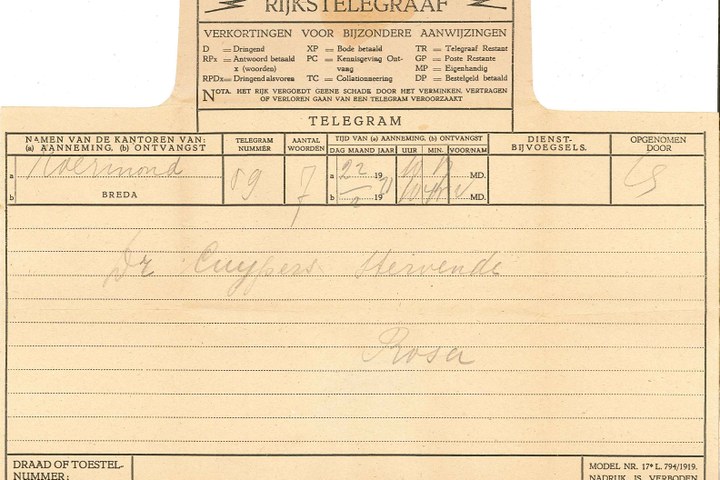 RIJKSTELEGRAAF
VERKORTINGEN VOOR BIJZONDERE AANWIJZINGEN
D = Dringend XP = Bode betaald TR = Telegraaf Restant
RPx = Antwoord betaald PC = Kennisgeving Ont- GP = Poste Restante
x (woorden) vangst MP = Eigenhandig
RPDx= Dringend alsvoren TC = Collationneering DP = Bestelgeld betaald
NOTA. HET RIJK VERGOEDT GEENE SCHADE DOOR HET VERMINKEN, VERTRAGEN
OF VERLOREN GAAN VAN EEN TELEGRAM VEROORZAAKT
TELEGRAM
NAMEN VAN DE KANTOREN VAN: TELEGRAM AANTAL TIJD VAN (a) AANNEMING, (b) ONTVANGST DIENST- OPGENOMEN
(a) AANNEMING, (b) ONTVANGST NUMMER WOORDEN DAG MAAND JAAR UUR MIN. VOORNAM BIJVOEGSELS. DOOR
a Roermond 59 7 a 22 19 MD.
b BREDA b 2 19 MD.
Dr Cuypers stervende
Rosa
DRAAD OF TOESTEL- MODEL NR. 17* L. 794/1919.
NUMMER: NADRUK IS VERBODEN